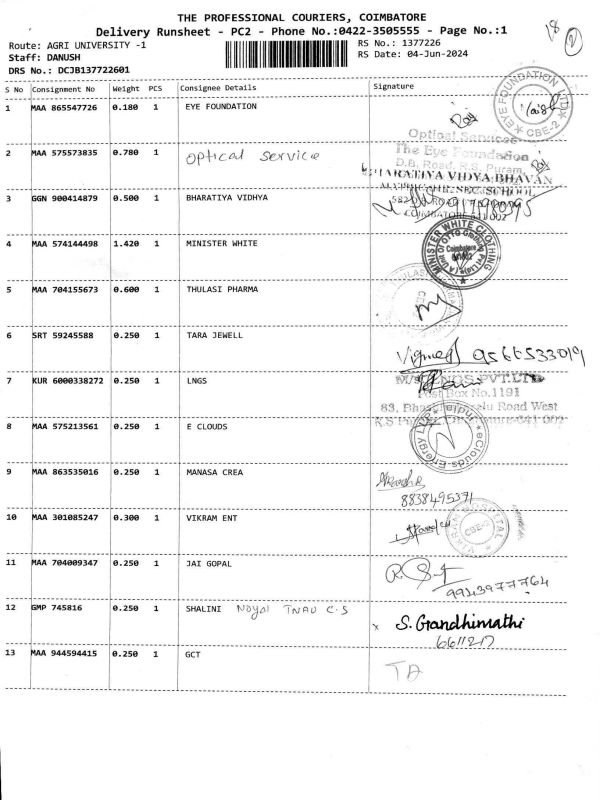 THE PROFESSIONAL COURIERS, COIMBATORE
Delivery Runsheet - PC2 - Phone No.:0422-3505555 - Page No.:1
Route: AGRI UNIVERSITY -1
RS No.: 1377226
Staff: DANUSH
RS Date: 04-Jun-2024
DRS No.: DCJB137722601
S No Consignment No Weight PCS Consignee Details Signature
1 MAA 865547726 0.180 1 EYE FOUNDATION
EYE FOUNDATION LTD
CBE-2
Optical Services
2 MAA 575573835 0.780 1 optical service
The Eye Foundation
D.B. Road, R.S. Puram,
BHARATIYA VIDYA BHAVAN
3 GGN 900414879 0.500 1 BHARATIYA VIDHYA
4 MAA 574144498 1.420 1 MINISTER WHITE
MINISTER WHITE CLOTHING
Coimbatore
5 MAA 704155673 0.600 1 THULASI PHARMA
6 SRT 59245588 0.250 1 TARA JEWELL
9566533019
7 KUR 6000338272 0.250 1 LNGS
PVT.LTD
Post Box No.1191
Road West
8 MAA 575213561 0.250 1 E CLOUDS
9 MAA 863535016 0.250 1 MANASA CREA
8838495371
10 MAA 301085247 0.300 1 VIKRAM ENT
HOSPITAL
CBE-2
11 MAA 704009347 0.250 1 JAI GOPAL
9943977764
12 GMP 745816 0.250 1 SHALINI Nayal TNAU C.S
x S. Grandhimathi
6611217
13 MAA 944594415 0.250 1 GCT
TA